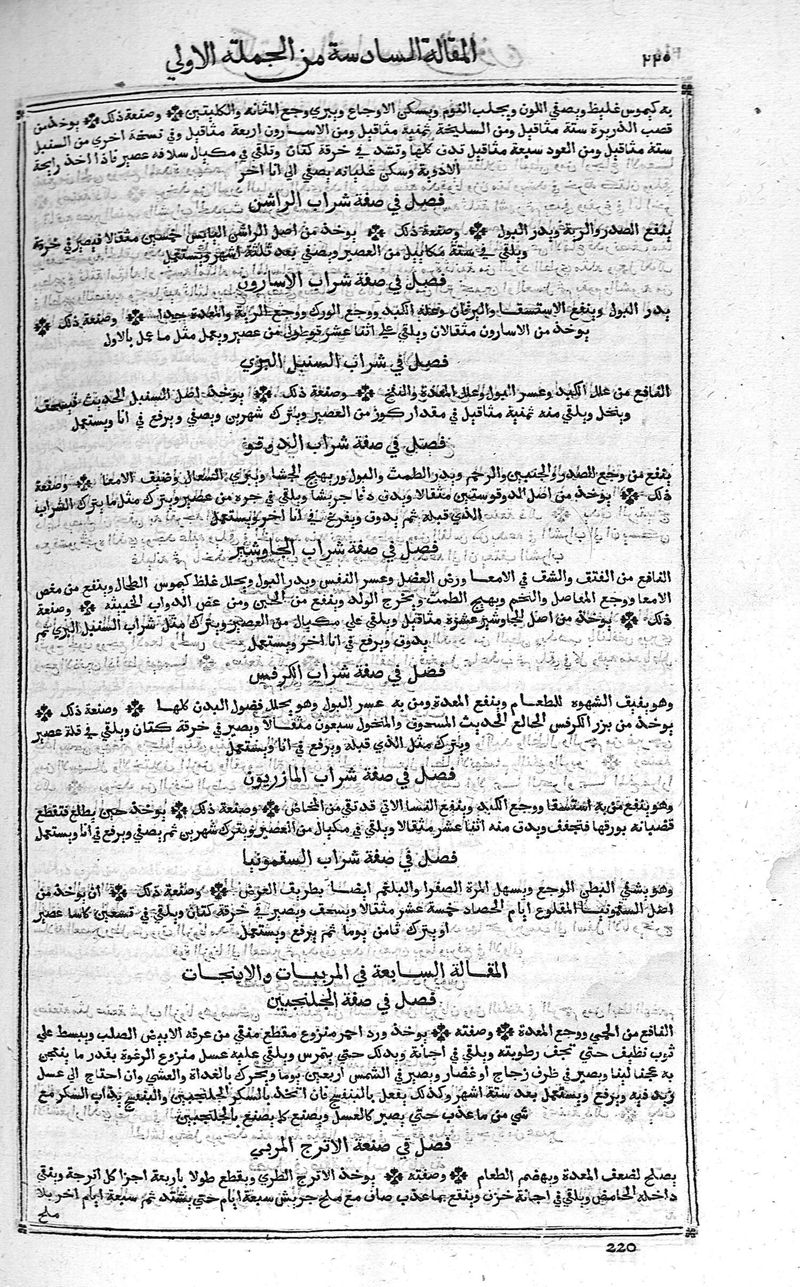 ٢٢٠ المقالة السادسة من الجملة الاولي
به كيموس غليظ ويصفي اللون ويجلب النوم ويسكن الاوجاع ويبري وجع المثانه والكليتين وصنعة ذلك يوخذ من
قصب الذريرة ستة مثاقيل ومن السليخة ثمنية مثاقيل ومن الاسارون اربعة مثاقيل وفي نسخة اخري من السنبل
مثاقيل ومن العود سبعة مثاقيل تدق كلها وتشد في خرقة كتان وتلقي في مكيال سلافه عصير فاذا اخذ رايحة
الادوية وسكن غليانه يصفي الي انا اخر
فصل في صفة شراب الراشن
ينفع الصدر والرية ويدر البول وصنعة ذلك يوخذ من اصل الراشن اليابس خمسين مثقالا فيصير في خرقة
ويلقي في ستة مكاييل من العصير ويصفي بعد ثلثة اشهر ويستعمل
فصل في صفة شراب الاسارون
يدر البول وينفع الاستسقا واليرقان وعلة الكبد ووجع الورك ووجع الرية والمعدة جيدا وصنعة ذلك
يوخذ من الاسارون مثقالان ويلقي علي اثنا عشر قوطولي من عصير ويعمل مثل ما عمل بالاول
فصل في شراب السنبل البري
النافع من علل الكبد وعسر البول وعلل المعدة والنفخ وصنعة ذلك يوخذ اصل السنبل الحديث فيسحق
وينخل ويلقي منه ثمنية مثاقيل في مقدار كوز من العصير ويترك شهرين ويصفي ويرفع في انا ويستعمل
فصل في صفة شراب الدوقو
ينفع من وجع الصدر والجنبين والرحم ويدر الطمث والبول ويهيج الجشا ويبري السعال وضيق الامعا وصنعة
ذلك يوخذ من اصل الدوقو ستين مثقالا ويدق دقا جريشا ويلقي في جره من عصير ويترك مثل ما يترك الشراب
الذي قبله ثم يدوق ويفرخ في انا اخر ويستعمل
فصل في صفة شراب الجاوشير
النافع من الفتق والشق في الامعا ورض العضل وعسر النفس ويدر البول ويحلل غلظ كيموس الطحال وينفع من مغص
الامعا ووجع المفاصل والتخم ويهيج الطمث ويخرج الولد وينفع من الحبن ومن عض الدواب الخبيثه وصنعة
ذلك يوخذ من اصل الجاوشير عشرة مثاقيل ويلقي علي مكيال من العصير ويترك مثل شراب السنبل البري ثم
يدوق ويرفع في انا اخر ويستعمل
فصل في صفة شراب الكرفس
وهو يفيق الشهوه للطعام وينفع المعدة ومن به عسر البول وهو يحلل فضول البدن كلها وصنعة ذلك
يوخذ من بزر الكرفس الحديث المسحوق والمنخول سبعون مثقالا ويصير في خرقة كتان ويلقي في قلة عصير
ويترك مثل الذي قبله ويرفع في انا ويستعمل
فصل في صفة شراب المازريون
وهو ينفع من به استسقا ووجع الكبد وينفع النسا الاتي قد تقي من المخاض وصنعة ذلك يوخذ حين يطلع فتقطع
قضبانه بورقها فتجفف ويدق منه اثنا عشر مثقالا ويلقي في مكيال من العصير ويترك شهرين ثم يصفي ويرفع في انا ويستعمل
فصل في صفة شراب السقمونيا
وهو يشفي البطي الوجع ويسهل المرة الصفرا والبلغم ايضا بطريق العرض وصنعة ذلك ان يوخذ من
اصل السقمونيا المقلوع ايام الحصاد خمسة عشر مثقالا ويسحق ويصير في خرقة كتان ويلقي في تسعين كاسا عصير
او يترك ثامن يوما ثم يرفع ويستعمل
المقالة السابعة في المربيات والانبجات
فصل في صفة الجلنجبين
النافع من الحمي ووجع المعدة وصفته يوخذ ورد احمر منزوع مقطع منقي من عرقه الابيض الصلب ويبسط علي
ثوب نظيف حتي تجف رطوبته ويلقي في اجانة ويدلك حتي يتمرس ويلقي عليه عسل منزوع الرغوة بقدر ما ينعجن
به عجنا لينا ويصير في ظرف زجاج او غضار ويصير في الشمس اربعين يوما ويحرك بالغداة والعشي وان احتاج الي عسل
زيد فيه ويرفع ويستعمل بعد ستة اشهر وكذلك يفعل بالبنفسج فان اتخذ بالسكر الجلنجبين والبنفسج يذاب السكر مع
شي من ما عذب حتي يصير كالعسل ويصنع كما يصنع بالجلنجبين
فصل في صنعة الاترج المربي
يصلح لضعف المعدة ويهضم الطعام وصفته يوخذ الاترج الطري ويقطع طولا باربعة اجزا كل اترجة وينقي
داخله الحامض ويلقي في اجانة خزف وينقع بما عذب صاف مع ملح جريش سبعة ايام حتي يشتد ثم سبعة ايام اخر بلا
ملح
220